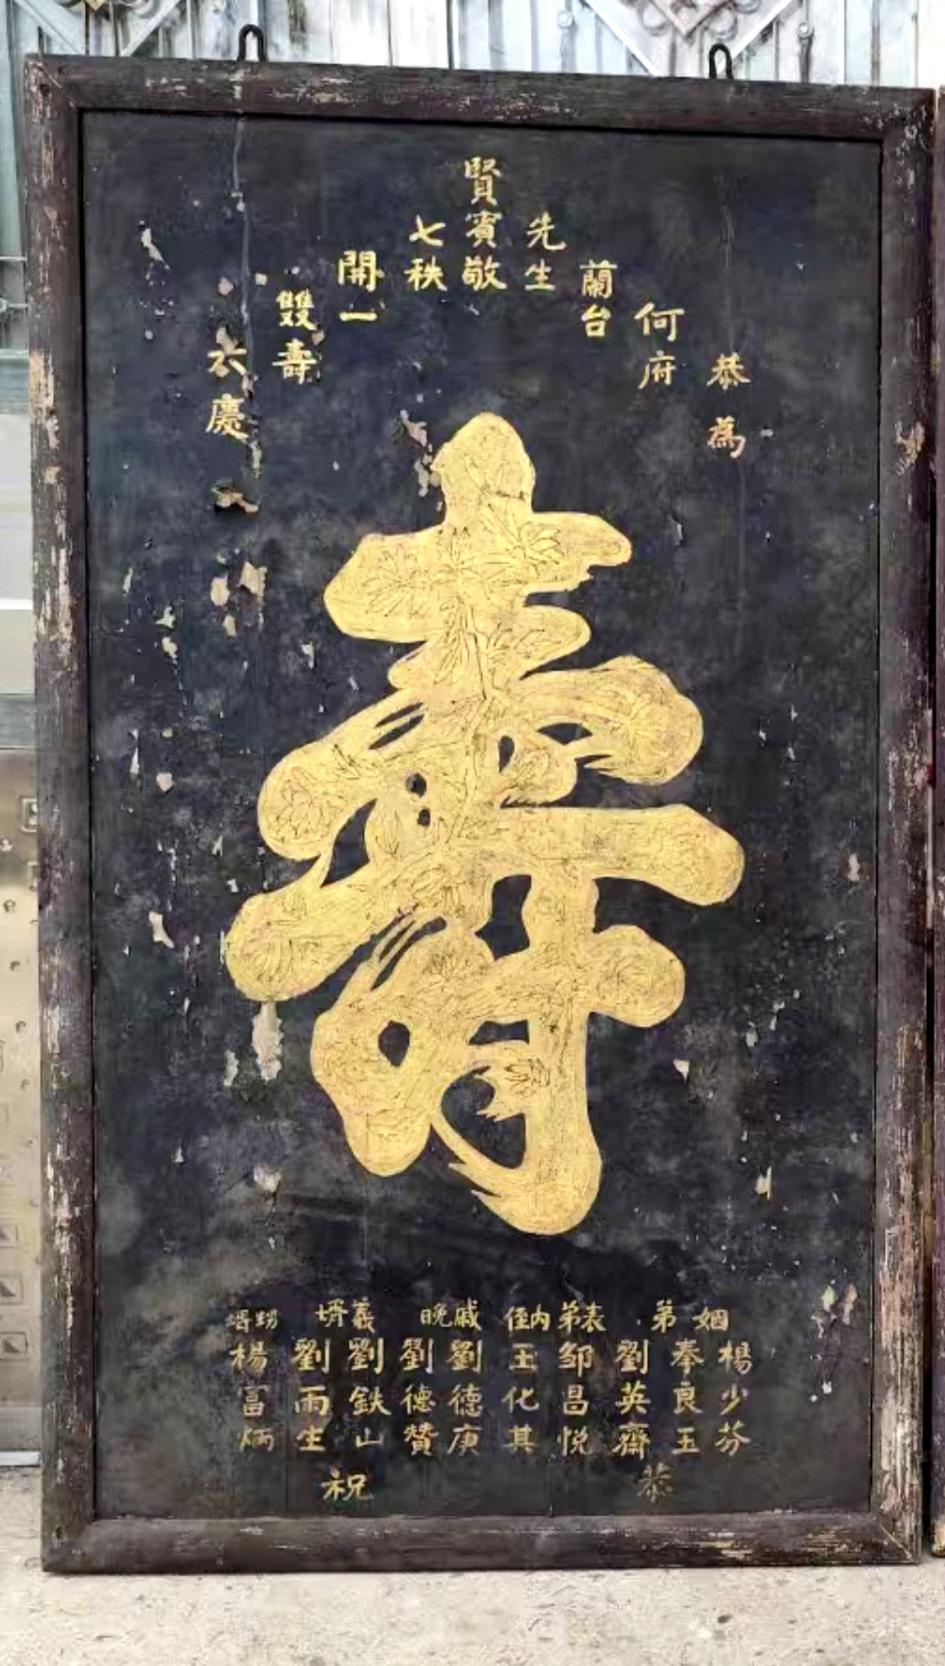 恭為
何府
蘭台
先生
賢賓敬
七秩
開一
雙壽
慶
壽
姻弟
楊少芬
奉良玉
劉英齋
表弟
邹昌悅
内侄
王化其
戚晚
劉德庚
劉德贊
義壻
劉鉄山
劉雨生
甥壻
楊富炳
恭祝